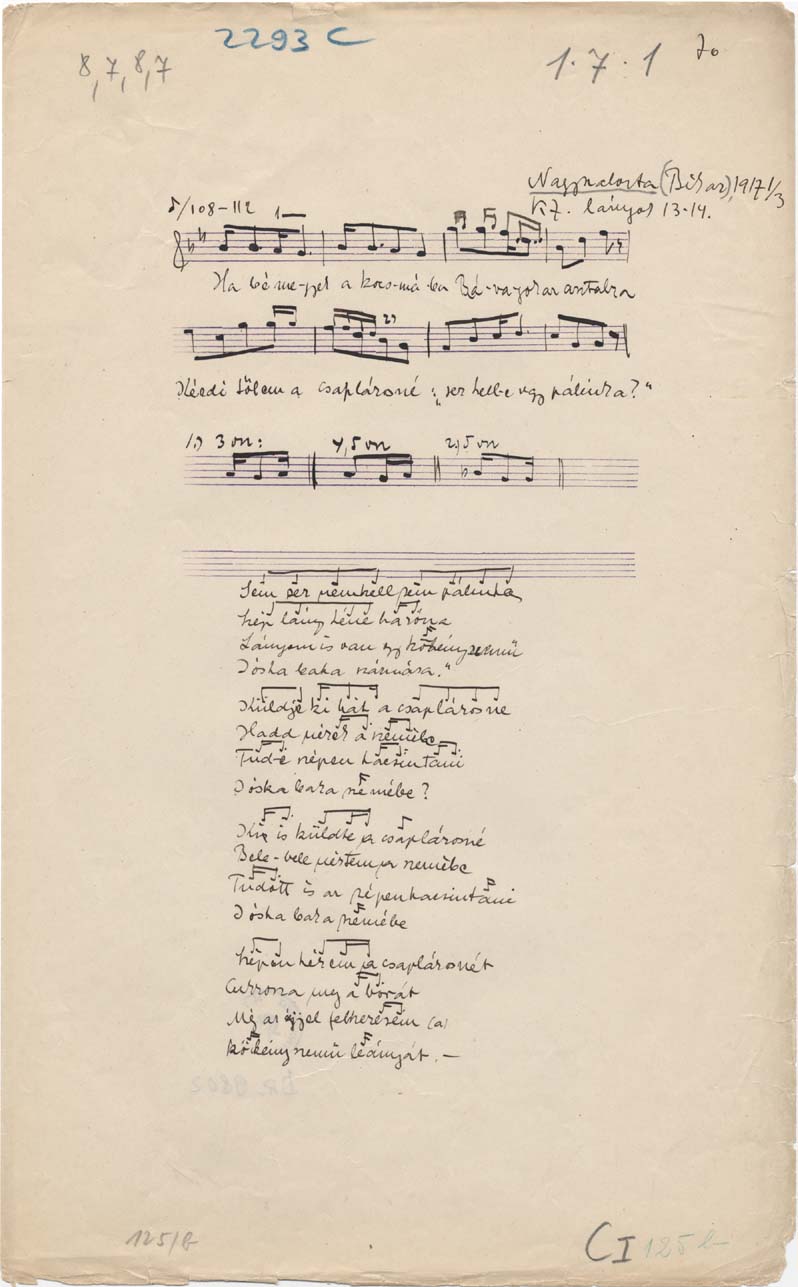 2293 C
8,7,8,7
1.7.1
70
Nagyszalonta (Bihar), 1917 1/3
V.Z. lányok 13-14.
♪/108-112
1
Ha bémegyek a kocs-má-ba Rá-vágok az asztalra
2)
Kérdi tőlem a csaplárosné: „ser kell-e vagy pálinka?"
1.) 3 vn:
4,5 vn
2.) 5 vn
Sem ser nem kell sem pálinka
Szép lány kéne
Lányom is van egy kökényszemű
Jóska baka számára."
Küldje ki hát a csaplárosné
Hadd nézek a szemébe
Tud-e szépen kacsintani
Jóska baka szemébe?
Ki is küldte a csaplárosné
Bele-bele néztem a szemébe
Tudott is az szépen kacsintani
Jóska baka szemébe
Szépen kérem a csaplárosnét
meg a borát
Még az éjjel felkeresem (a)
Kökényszemű leányát. —
125/b
CI
125 b